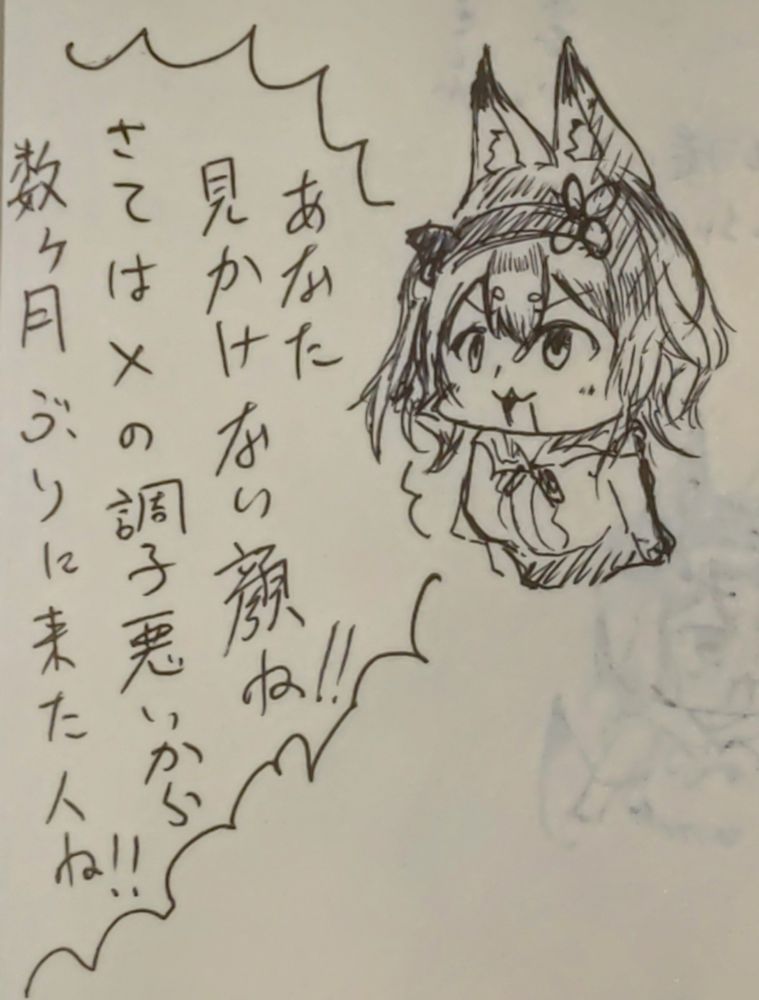 あなた
見かけない顔ね!!
さてはXの調子悪いから
数ヶ月ぶりに来た人ね!!